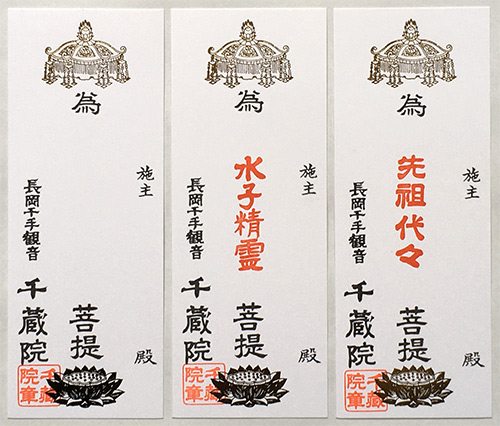 為
菩提
施主
殿
長岡千手観音
千蔵院
千蔵
院章
為
水子精霊
菩提
施主
殿
長岡千手観音
千蔵院
千蔵
院章
為
先祖代々
菩提
施主
殿
長岡千手観音
千蔵院
千蔵
院章